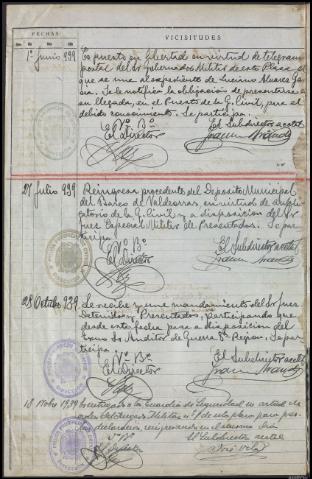 FECHAS
VICISITUDES
1º junio 939
Es puesto en libertad en virtud de telegrama
postal del Sr Gobernador Militar de esta Plaza
que se une al expediente de Luciano Alvarez
Se le notifica la obligacion de presentarse a
su llegada, en el Puesto de la G. Civil, para el
debido conocimiento. Se participa.
Vº Bº
El Director
El Subdirector acctal
27 Julio 939
Reingresa procedente del Deposito Municipal
del Barco de Valdeorras, en virtud de
de la G. Civil y a disposicion del Sr
Juez Especial Militar de Presentados. Se par-
ticipa
Vº Bº
El Director
El Subdirector acctal
28 Octubre 939
Se recibe y une mandamiento del Sr Juez
Detenidos y Presentados, participando que
desde esta fecha pasa a disposicion del
Excmo Sr Auditor de Guerra 8ª Region. Se par-
ticipa
Vº Bº
El Director
El Subdirector acctal
18 Nobre 1939
Vº Bº
El Director
El Subdirector acctal